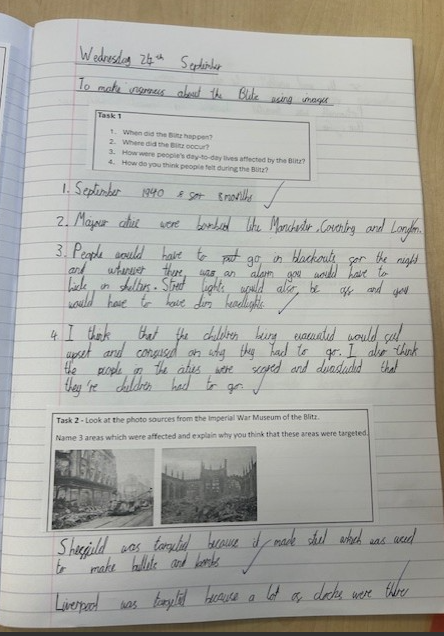 Wednesday 24th September
To make inferences about the Blitz using images
Task 1
1. When did the Blitz happen?
2. Where did the Blitz occur?
3. How were people's day-to-day lives affected by the Blitz?
4. How do you think people felt during the Blitz?
1. September 1940 & for 8 months
2. Majour cities were bombed like Manchester, Coventry and London.
3. People would have to put go in blackouts for the night
and whenever there was an alarm you would have to
hide in shelters. Street lights would also be off and you
would have to have dim headlights.
4 I think that the children being evacuated would feel
upset and confused on why they had to go. I also think
the people in the cities were scared and devastated that
they're children had to go.
Task 2 - Look at the photo sources from the Imperial War Museum of the Blitz.
Name 3 areas which were affected and explain why you think that these areas were targeted.
Sheffield was targeted because it made steel which was used
to make bullets and bombs
Liverpool was targeted because a lot of docks were there